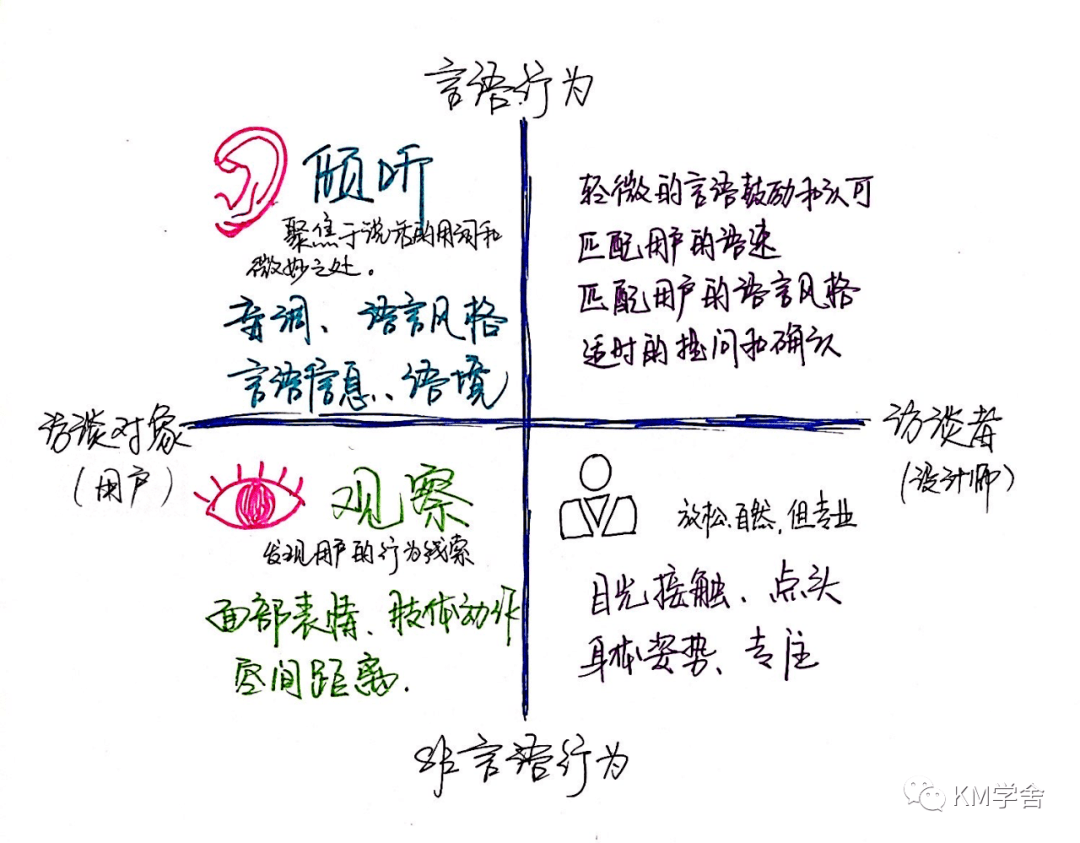 言语行为
倾听
聚焦于说话的用词和
微妙之处。
音调、语言风格
言语信息、语境
轻微的言语鼓励和认可
匹配用户的语速
匹配用户的语言风格
适时的提问和确认
访谈对象
(用户)
访谈者
(设计师)
观察
发现用户的行为线索
面部表情、肢体动作
空间距离.
放松自然,但专业
目光接触、点头
身体姿势、专注
非言语行为
KM学舍